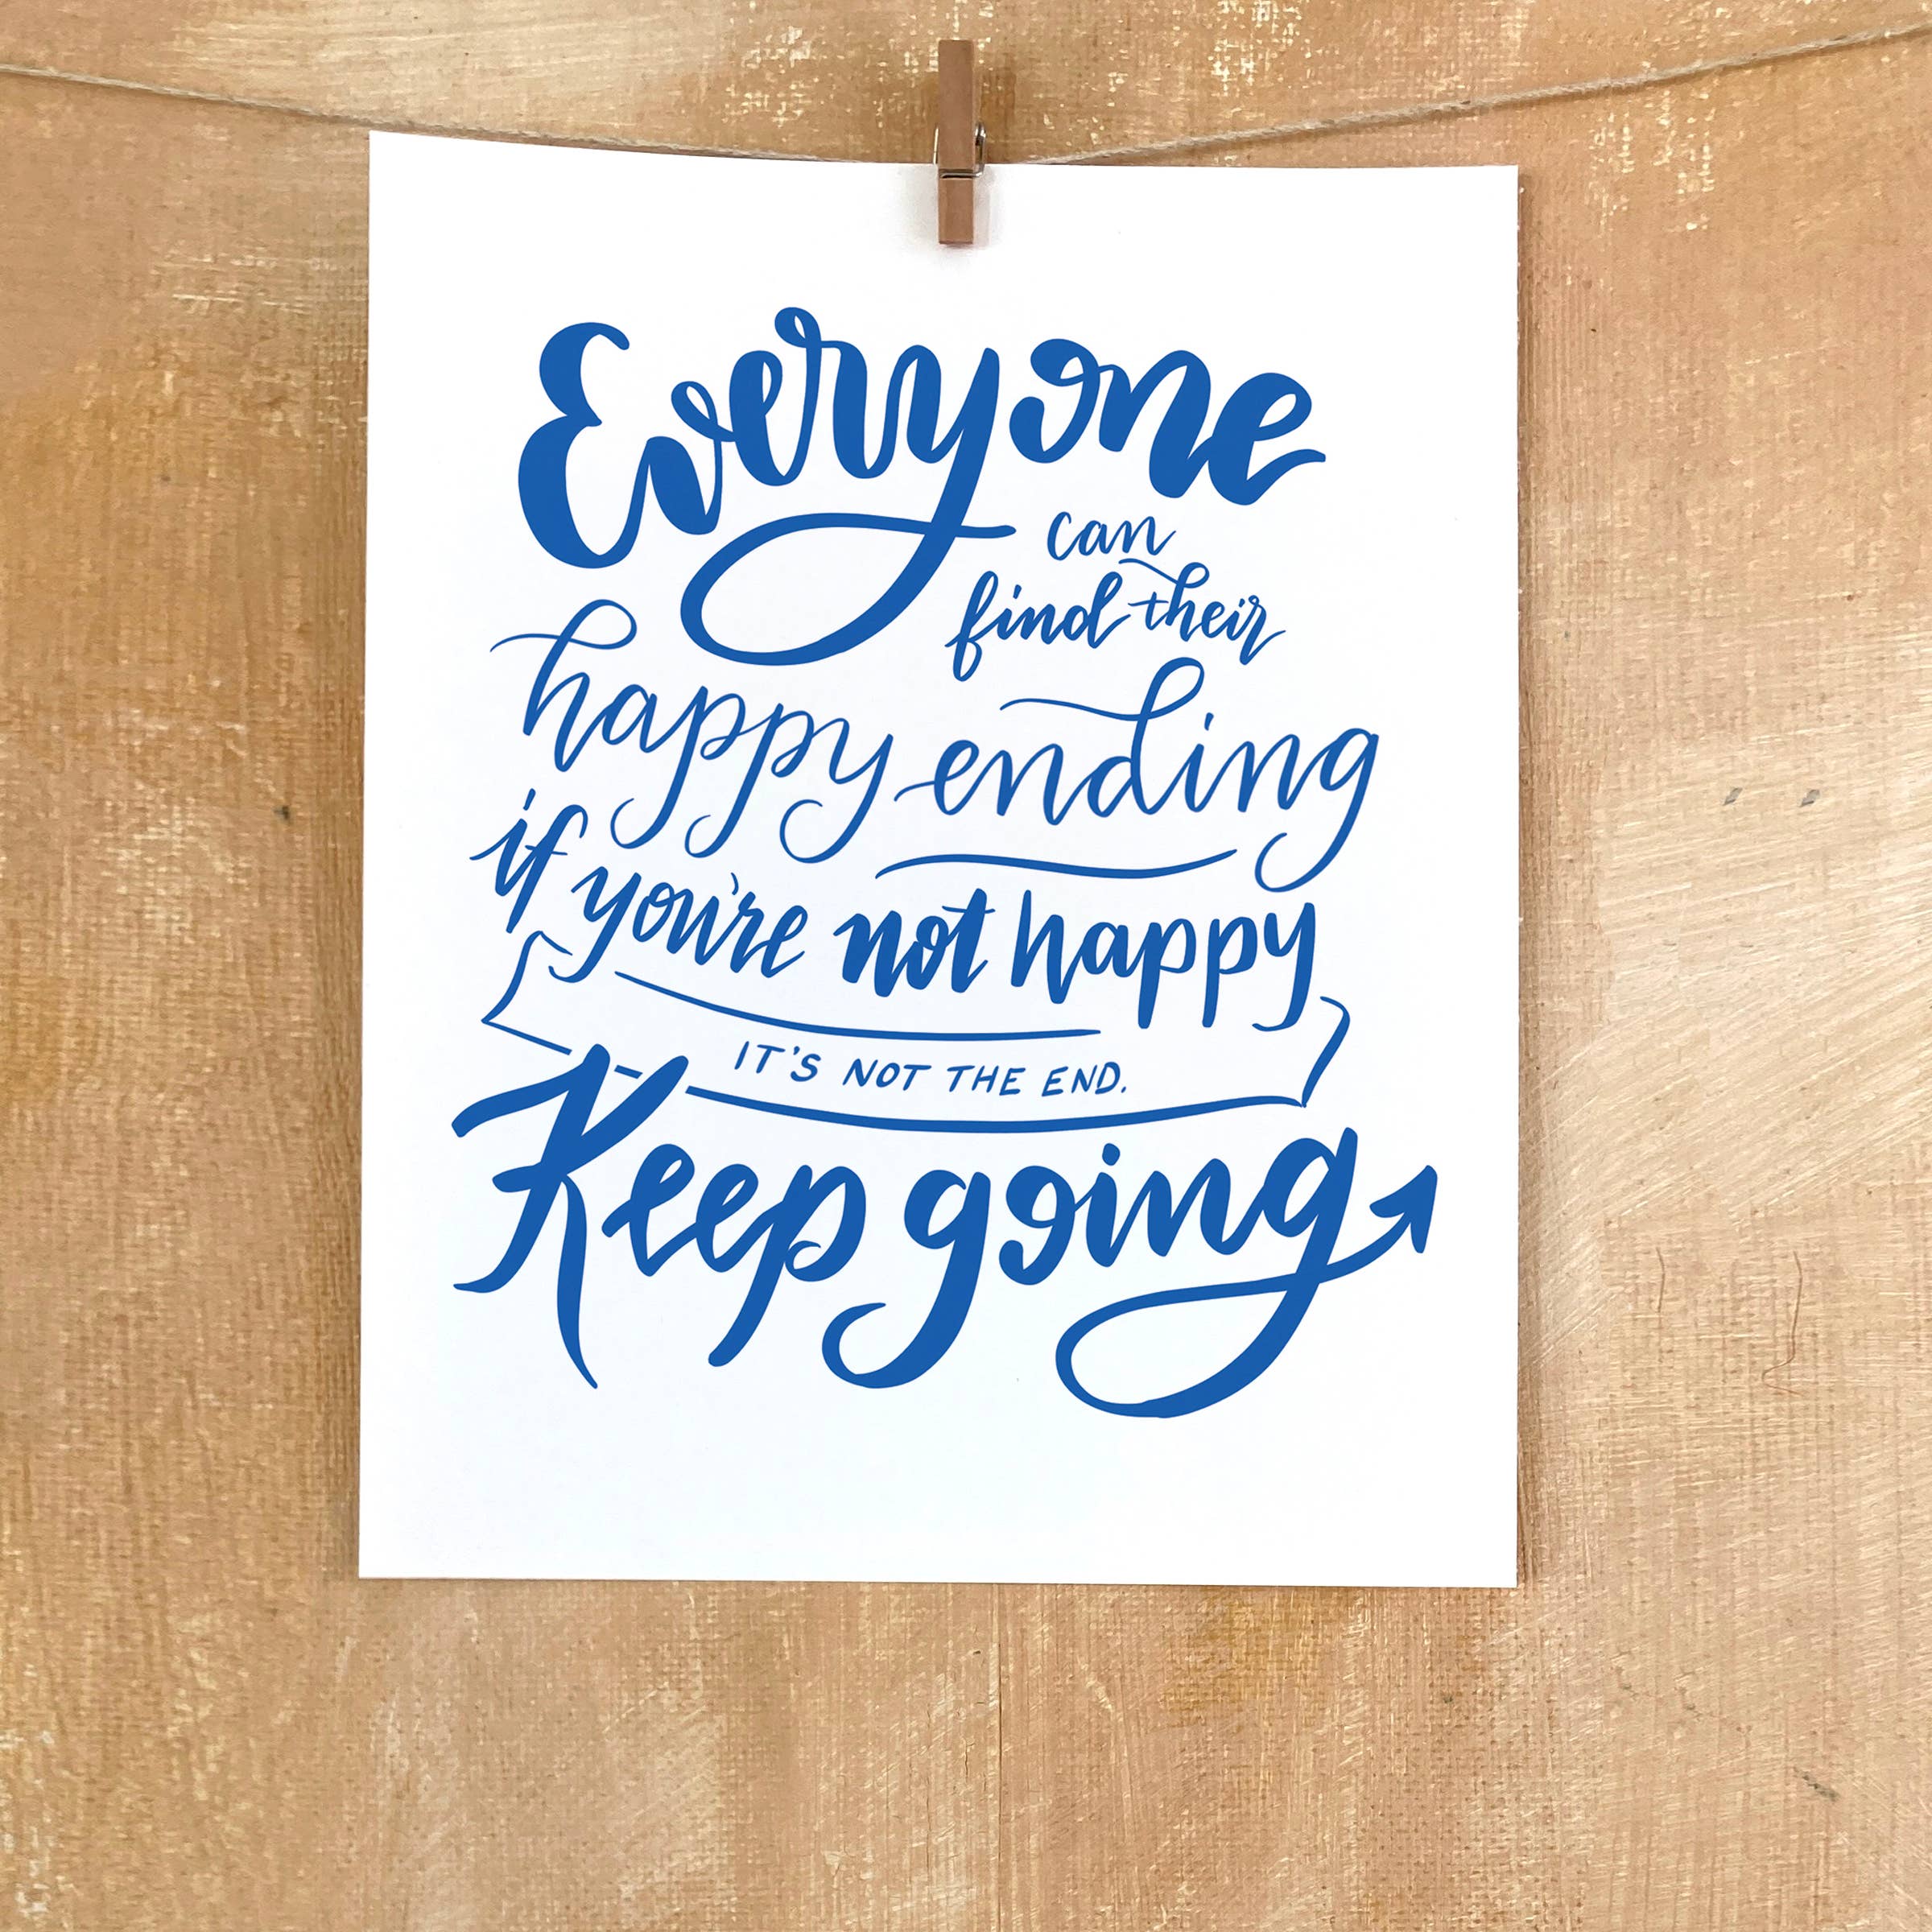 Everyone
can
find their
happy ending
if you're not happy
IT'S NOT THE END.
Keep going